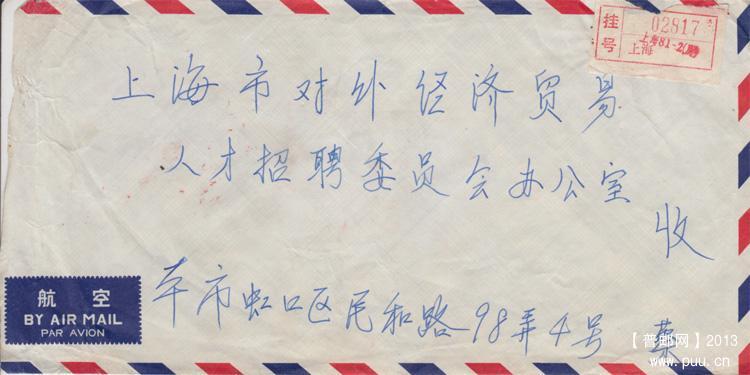 挂号
02817
上海
上海市对外经济贸易
人才招聘委员会办公室
收
本市虹口区民和路98弄4号
航空
BY AIR MAIL
PAR AVION
【普邮网】2013
www.puu.cn